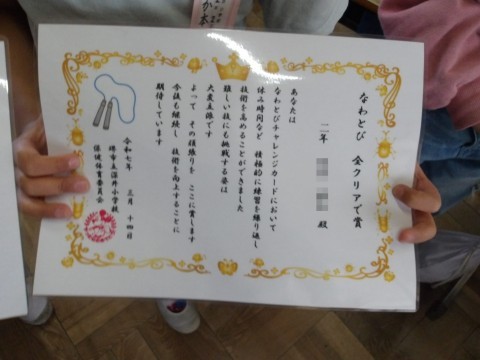 なわとび 全クリアで賞
二年 殿
あなたは
なわとびチャレンジカードにおいて
休み時間など 積極的に練習を繰り返し
技術を高めることができました
難しい技にも挑戦する姿は
大変立派です
よって その頑張りを ここに賞します
今後も継続し 技術を向上することに
期待しています
令和七年 三月 十四日
堺市立深井小学校
保健体育委員会